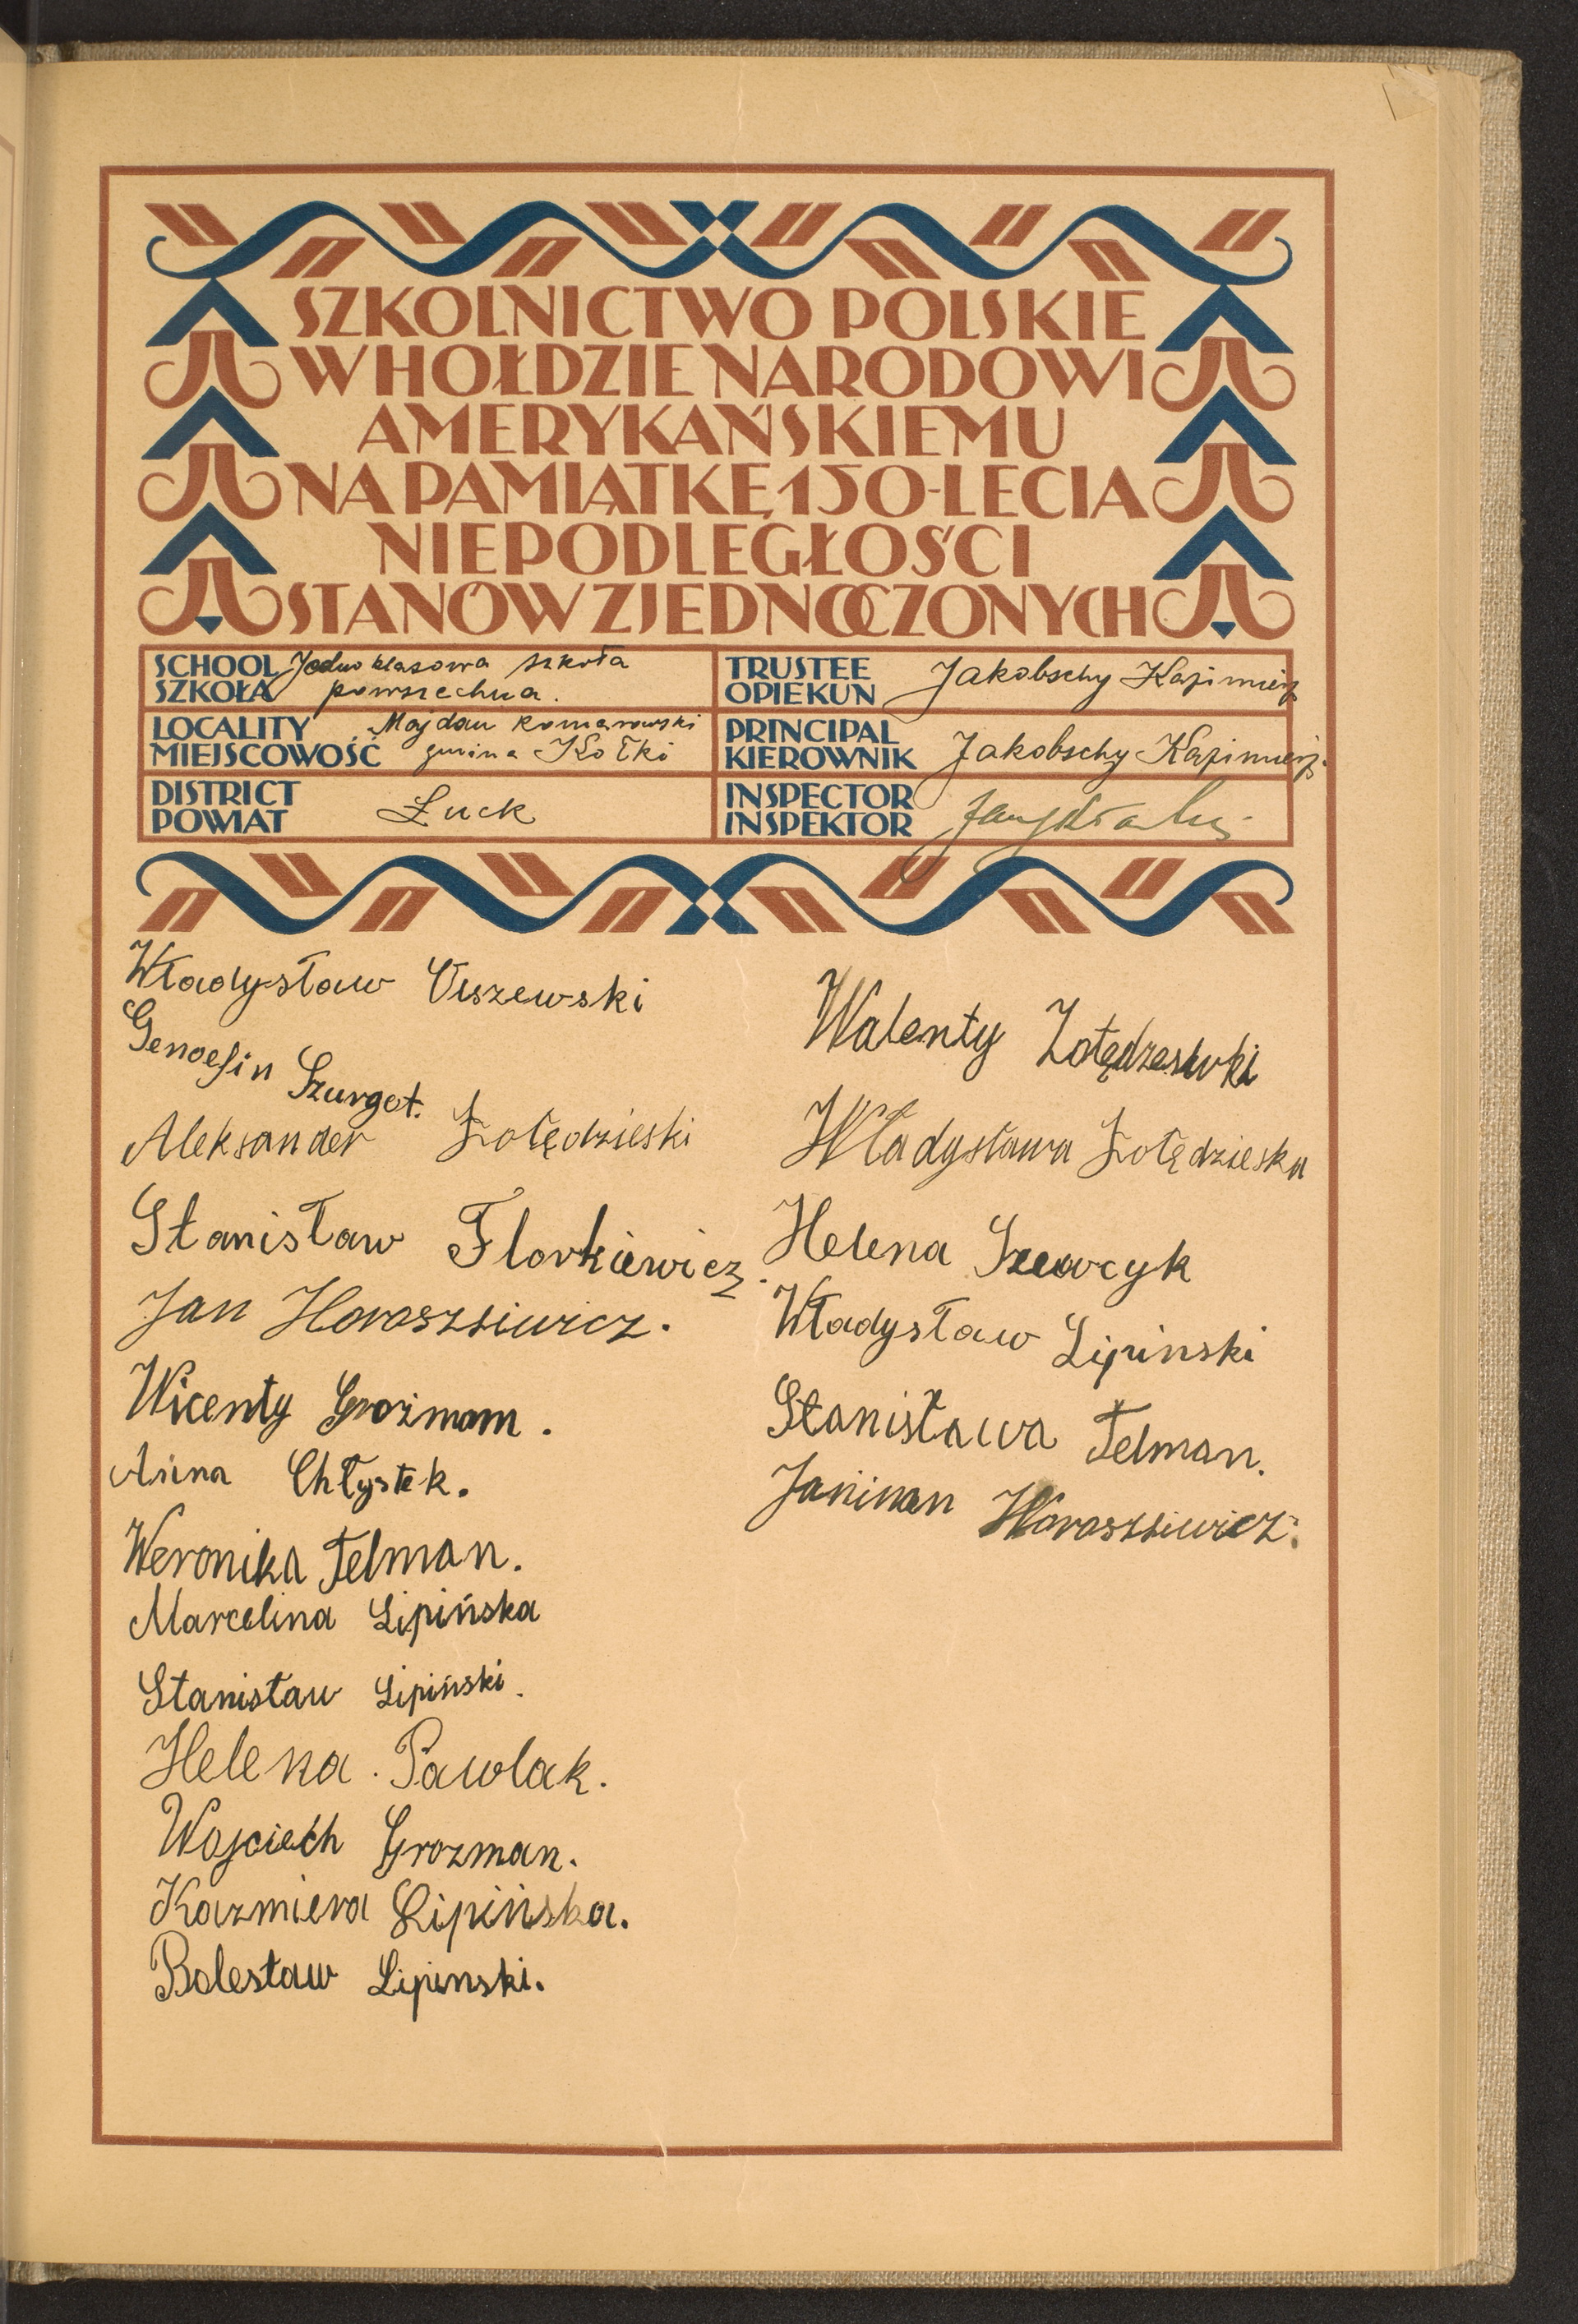 SZKOLNICTWO POLSKIE
W HOŁDZIE NARODOWI
AMERYKAŃSKIEMU
NA PAMIĄTKĘ 150-LECIA
NIEPODLEGŁOŚCI
STANÓW ZJEDNOCZONYCH
SCHOOL Jednoklasowa szkoła
SZKOŁA powszechna.
TRUSTEE
OPIEKUN Jakobschy Kazimierz
LOCALITY Majdan Komarowski
MIEJSCOWOŚĆ gmina Kołki
PRINCIPAL
KIEROWNIK Jakobschy Kazimierz.
DISTRICT
POWIAT Łuck
INSPECTOR
INSPEKTOR
Władysław Uszewski
Genoefin Szurgot.
Aleksander Żołędzieski
Stanisław Florkiewicz.
Jan Horoszkiewicz.
Wicenty Grozmam.
Anna Chłystek.
Weronika Felman.
Marcelina Lipińska
Stanisław Lipiński.
Helena. Pawlak.
Wojciech Grozman.
Kazmiera Lipińska.
Bolesław Lipinski.
Walenty
Władysława Żołędzieska
Helena Szewcyk
Władysław Lipinski
Stanisława Felman.
Janinan Horoszkiewicz.